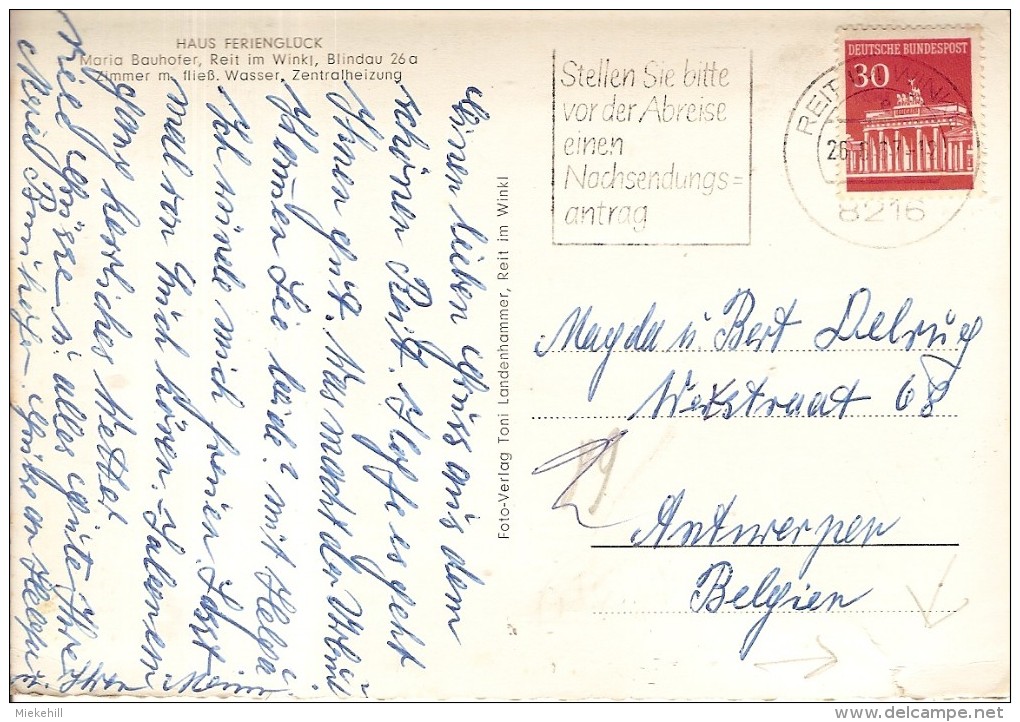 HAUS FERIENGLÜCK
Maria Bauhofer, Reit im Winkl, Blindau 26a
Zimmer m. fließ. Wasser, Zentralheizung
Einen lieben Gruss aus dem
schönen Reit. Hoffe es geht
Ihnen gut. Was macht der Urlaub
Kommen Sie beide? mit
Ich würde mich freuen. Lasst
mal von Euch hören. Haben
ganz herrliches Wetter
viele Grüsse u. alles Gute Ihre
Foto-Verlag Toni Landenhammer, Reit im Winkl
Stellen Sie bitte
vor der Abreise
einen
Nachsendungs=
antrag
DEUTSCHE BUNDESPOST
30
REIT IM WINKL
8216
Magda u. Bert Delrug
straat 68
Antwerpen
Belgien
Miekehill
delcampe.net